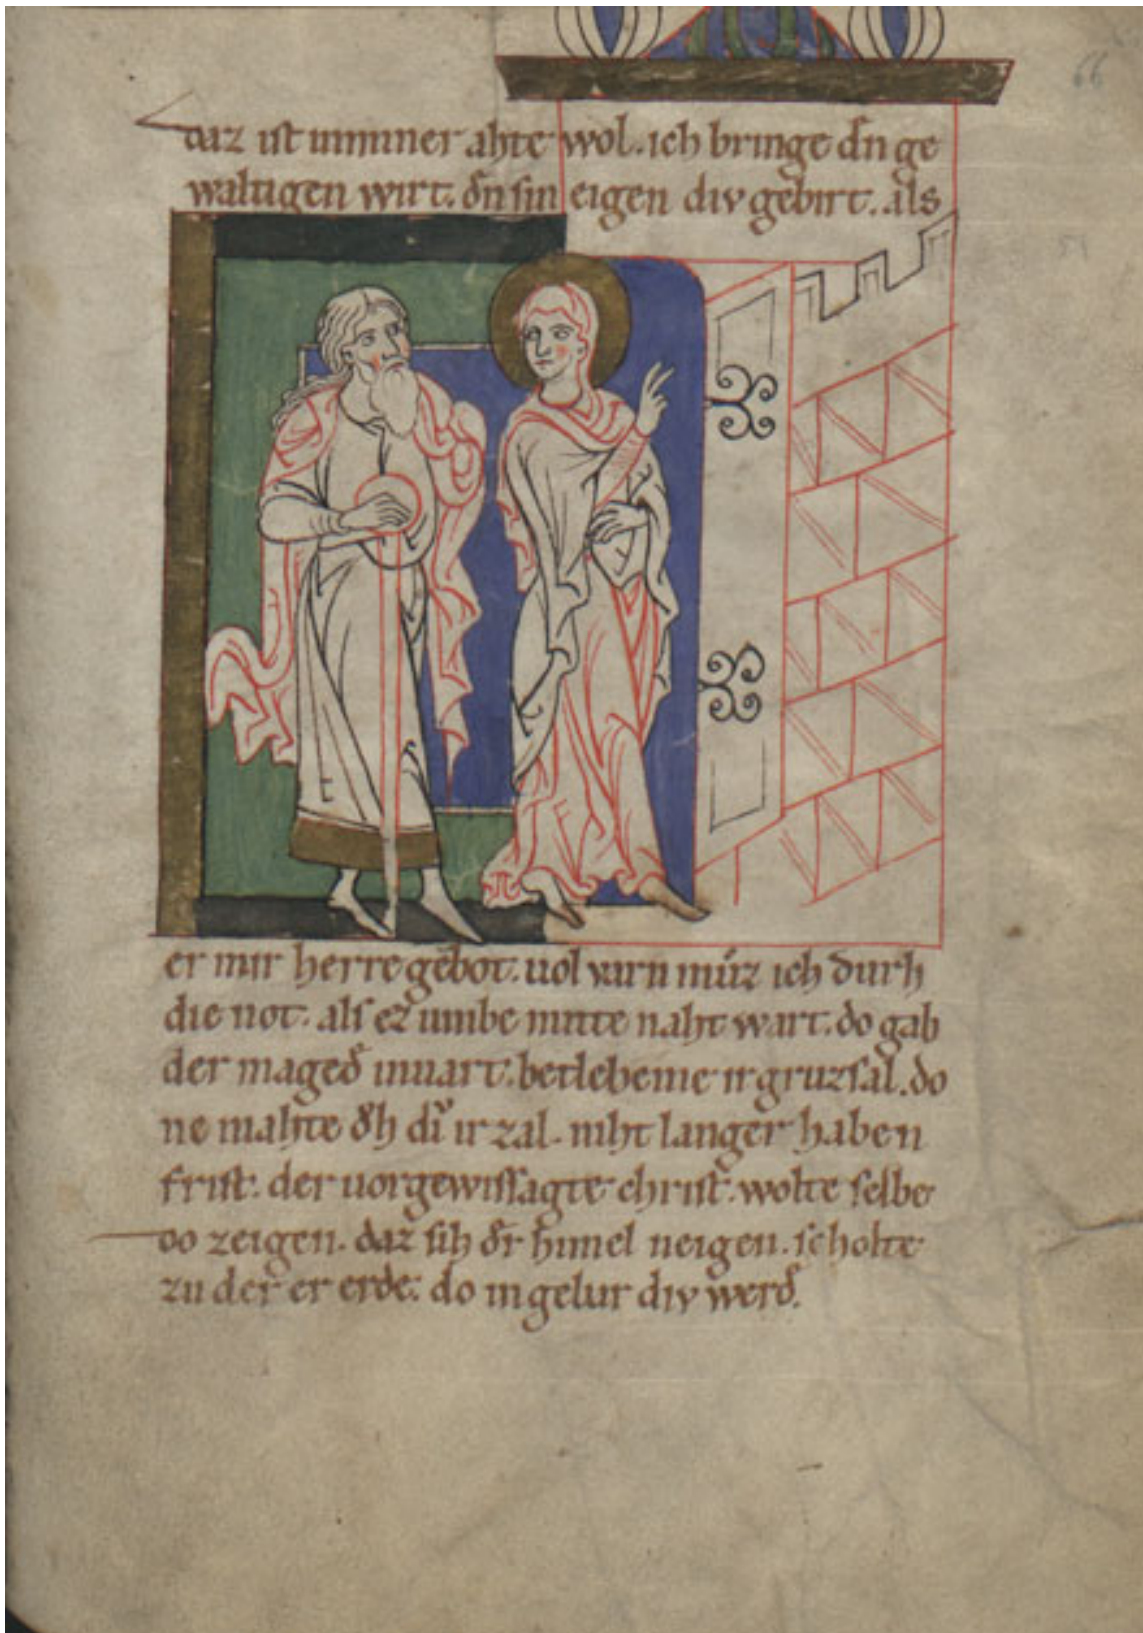 66
daz ist minner ahte wol. ich bringe dn̄ ge
waltigen wirt. dn̄ sin eigen div gebirt. als
51
er mir herre gebot. uol varn můz ich durh
die not. als ez umbe mitte naht wart. do gab
der maged inuart. betleheme ir gruzsal. do
ne mahte ir zal. niht langer haben
frist. der uorgewissagte christ. wolte selbe
do zeigen. daz sih dr̄ himel neigen. scholte
zu der erde. do div werd̄.